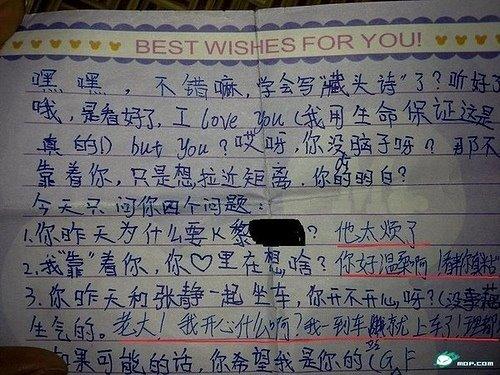 BEST WISHES FOR YOU!
嘿嘿,不错嘛,学会写"藏头诗"了?听好了
哦,是看好了,I love you(我用生命保证这是
真的!) but you?哎呀,你没脑子呀?那不
靠着你,只是想拉近距离,你的明白?
今天只问你四个问题:
1.你昨天为什么要K黎 ? 他太烦了
2.我"靠"着你,你♡里在想啥?你好温柔啊!
3.你昨天和张静一起坐车,你开不开心呀?(没事
生气的。老大!我开心什么啊?我一到车 就上车了!
如果可能的话,你希望我是你的(G.F
MOP.COM